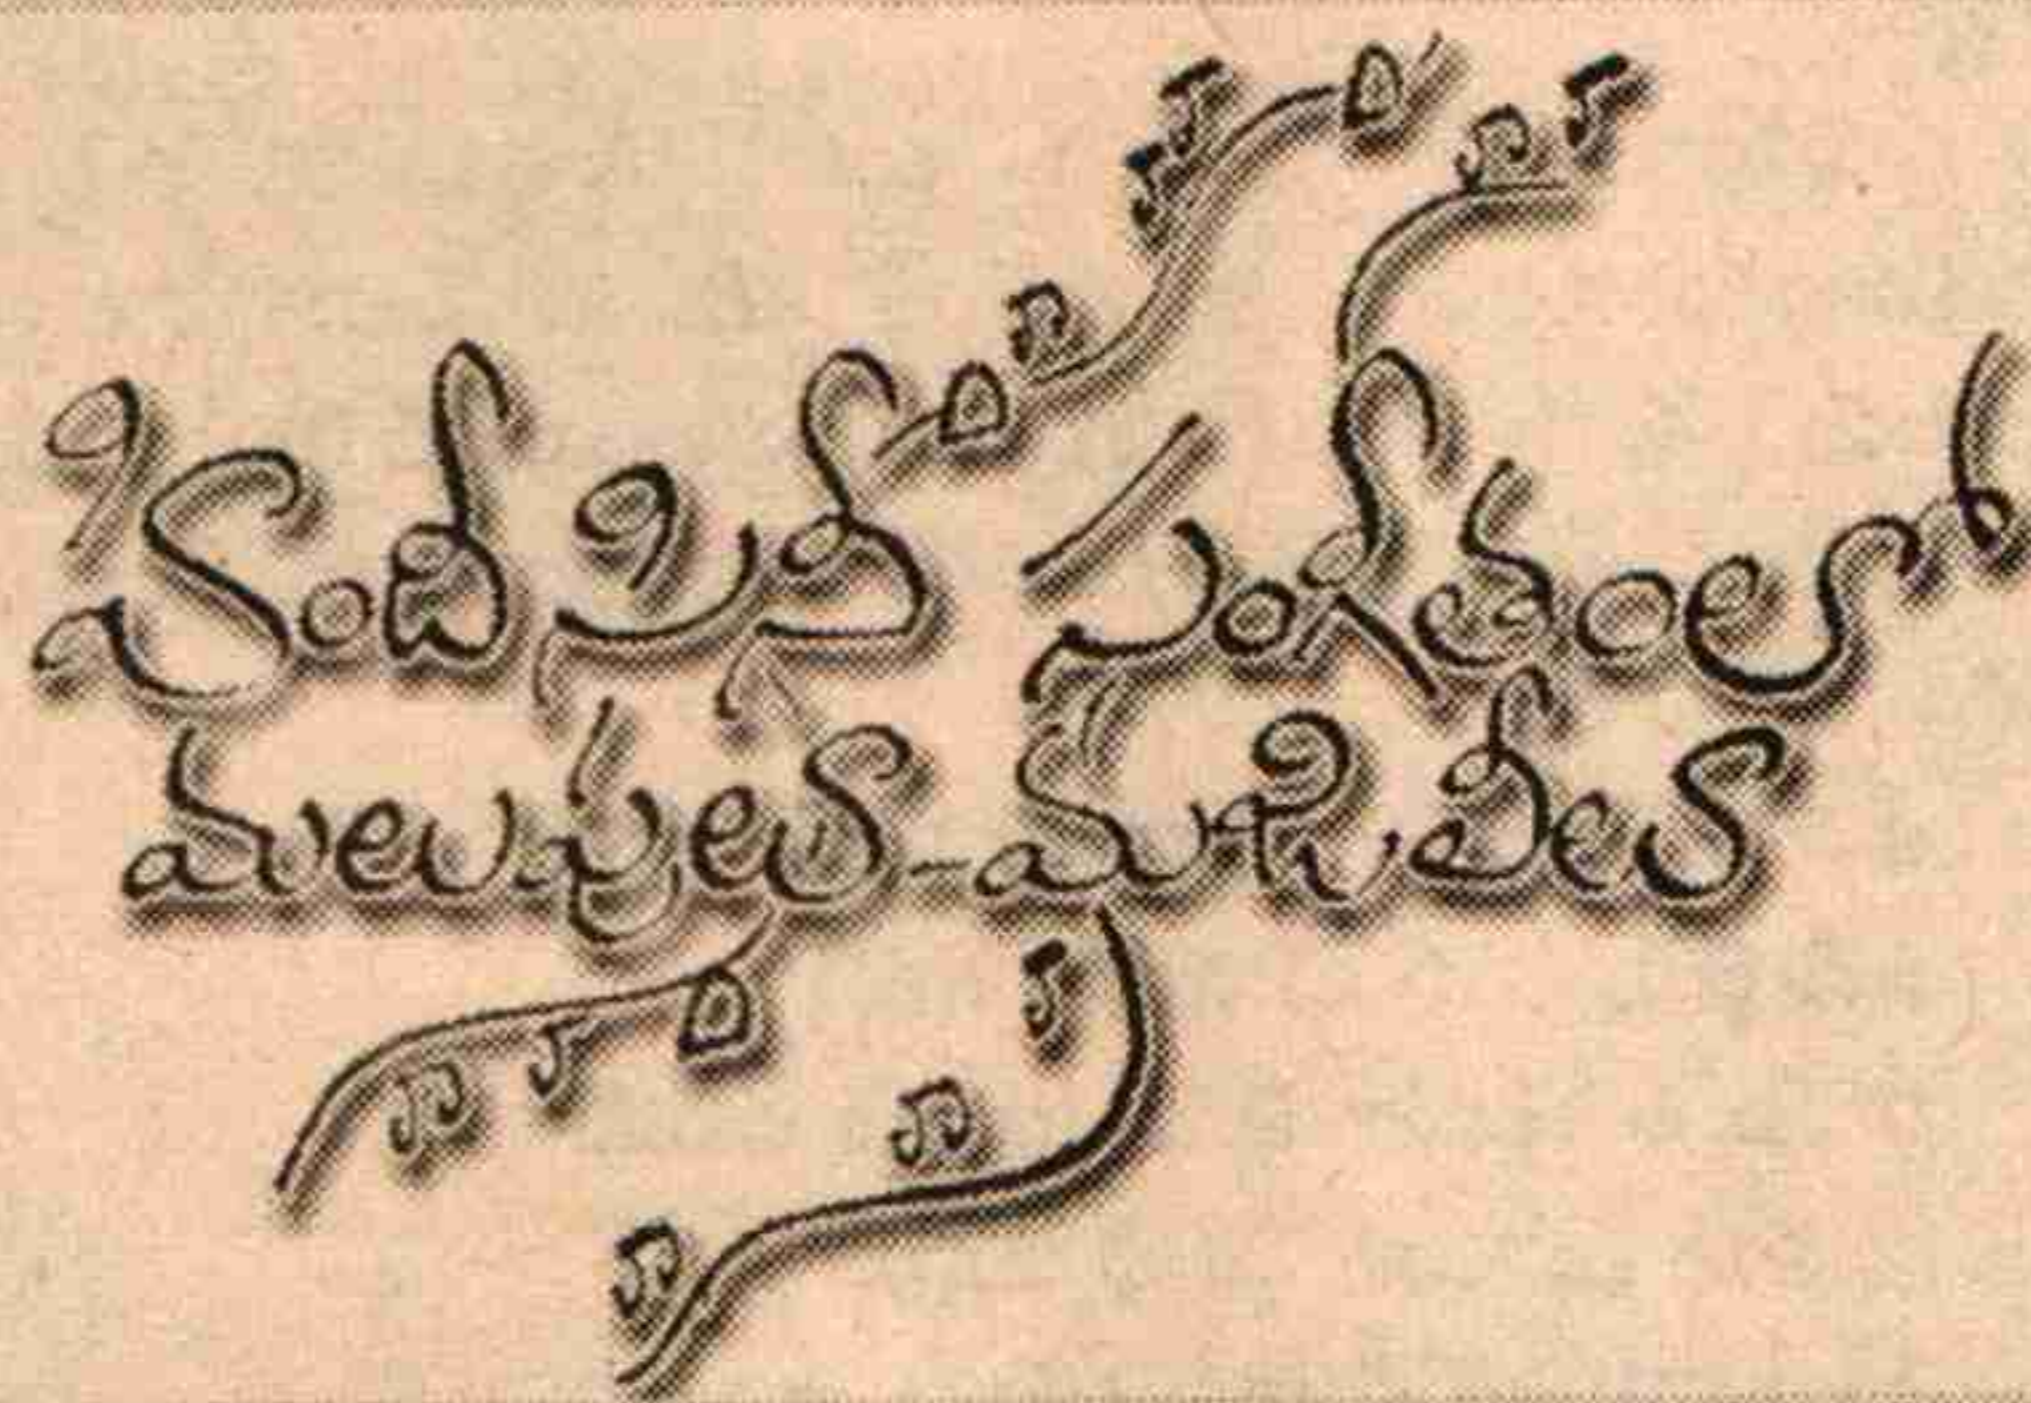 హిందీ సినీ సంగీతంలో
మలుపులు - మజిలీలు